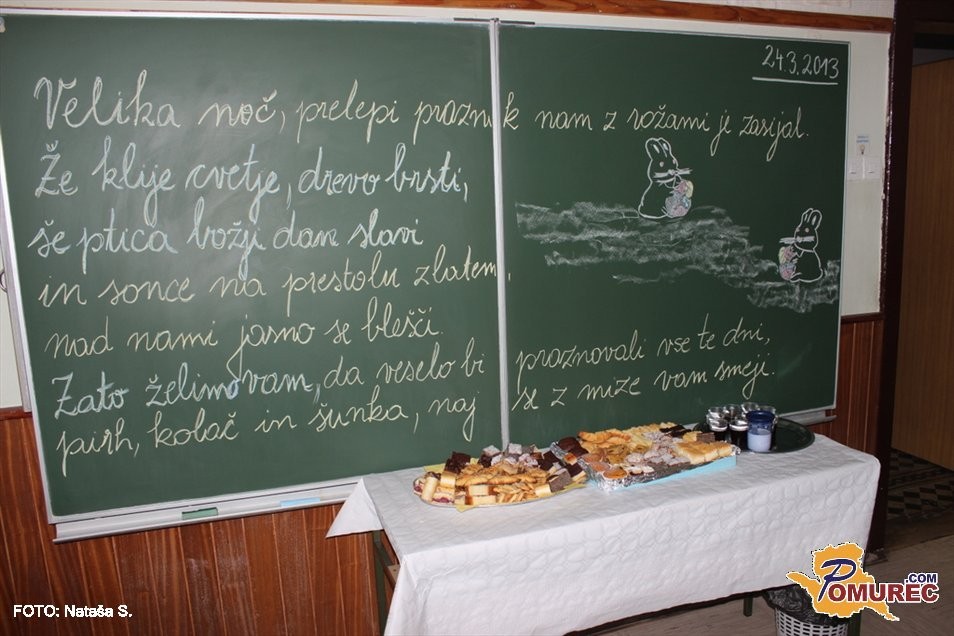 24.3.2013
Velika noč, prelepi praznik nam z rožami je zasijal.
Že klije cvetje, drevo brsti,
še ptica božji dan slavi
in sonce na prestolu zlatem,
nad nami jasno se blešči.
Zato želimo vam, da veselo bi praznovali vse te dni,
pirh, kolač in šunka, naj se z mize vam smeji.
FOTO: Nataša S.
POMUREC.COM